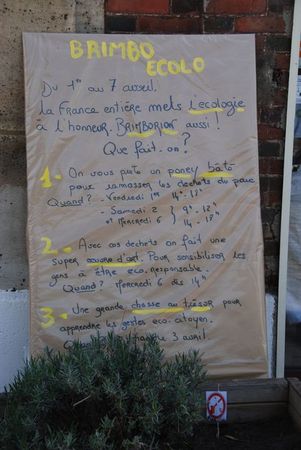 BRIMBO
ECOLO
Du 1er au 7 avril.
la France entière mets l'écologie
à l'honneur. BRIMBORION aussi !
Que fait-on ?
1- On vous prête un poney bâté
pour ramasser les déchets du parc
Quand ? - Vendredi 1er 14h-17h
- Samedi 2 9h-12h
- et Mercredi 6 14-17h
2- Avec ces déchets on fait une
super œuvre d'art. Pour sensibiliser les
gens à être eco. responsable.
Quand ? Mercredi 6 dès 14h
3- Une grande chasse au trésor pour
apprendre les gestes eco-citoyen.
3 avril